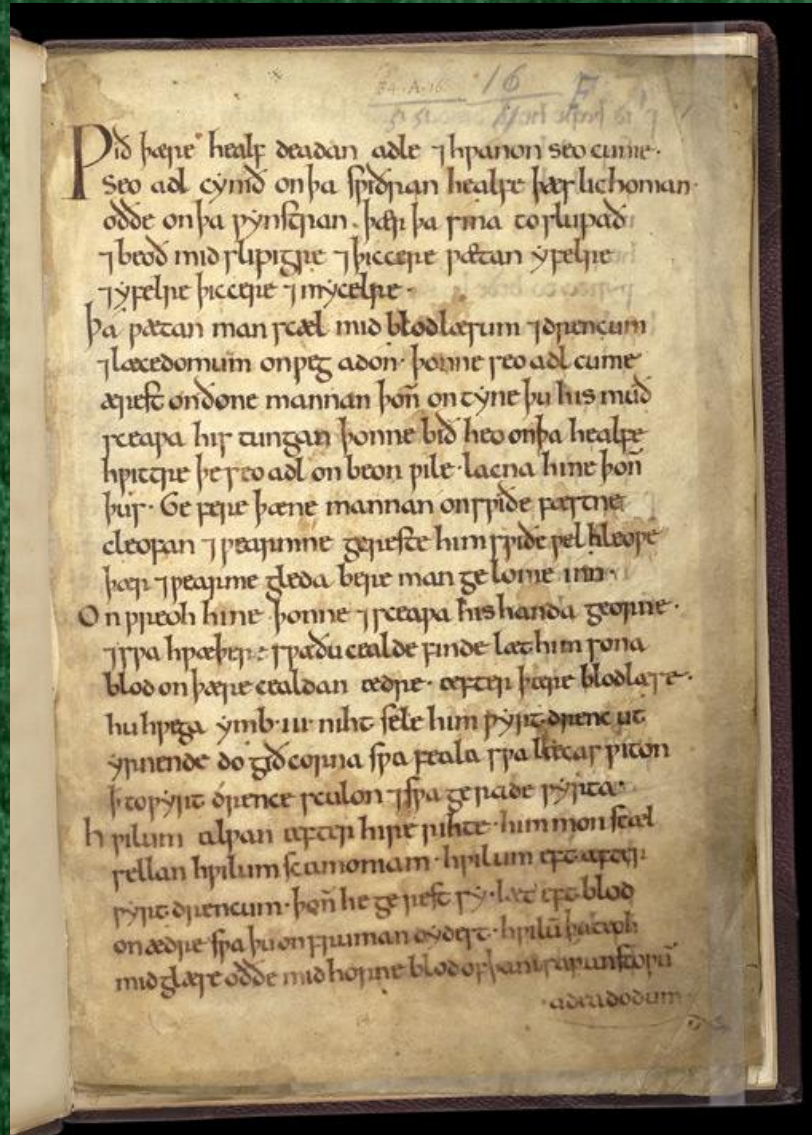 54. A. 16 16 F
Ƿið þære healf deadan adle ⁊ hƿanon seo cume·
Seo adl cymð on þa sƿiðran healfe þæs lichoman·
oððe on þa ƿynstran. þær þa sina toslupað
⁊ beoð mid slipigre ⁊ þiccere ƿætan yfelre
⁊ yfelre þiccere ⁊ mycelre·
Þa ƿætan man scæl mid blodlæsum ⁊ drencum
⁊ læcedomum onƿeg adon· þonne seo adl cume
ærest on ðone mannan þoñ ontyne þu his muð
sceaƿa his tungan þonne bið heo on þa healfe
hƿittre þe seo adl on beon ƿile· lacna hine þoñ
þus· Ge fere þæne mannan on sƿiðe fæstne
cleofan ⁊ ƿearmne gereste him sƿiðe ƿel hleoƿe
þær ⁊ ƿearme gleda bere man ge lome inn·
On ƿreoh hine þonne ⁊ sceaƿa his handa georne·
⁊ sƿa hƿæþere sƿa ðu cealde finde læt him sona
blod on þære cealdan ædre· æfter þære blodlæse·
hu hƿega ymb·iii·niht sele him ƿyrt drenc ut
yrnende do gið corna sƿa feala sƿa læcas ƿiton
ꝥ to ƿyrt drence sculon ⁊ sƿa gerade ƿyrta·
hƿilum alƿan æfter hire rihte· him mon scæl
sellan hƿilum scamoniam· hƿilum eft æfter
ƿyrt drencum· þoñ he ge rest sy· læt eft blod
on ædre sƿa þu on fruman dydest· hƿilū þu teoh
mid glæse oððe mid horne blod of þam sarum stoƿū
adeadodum